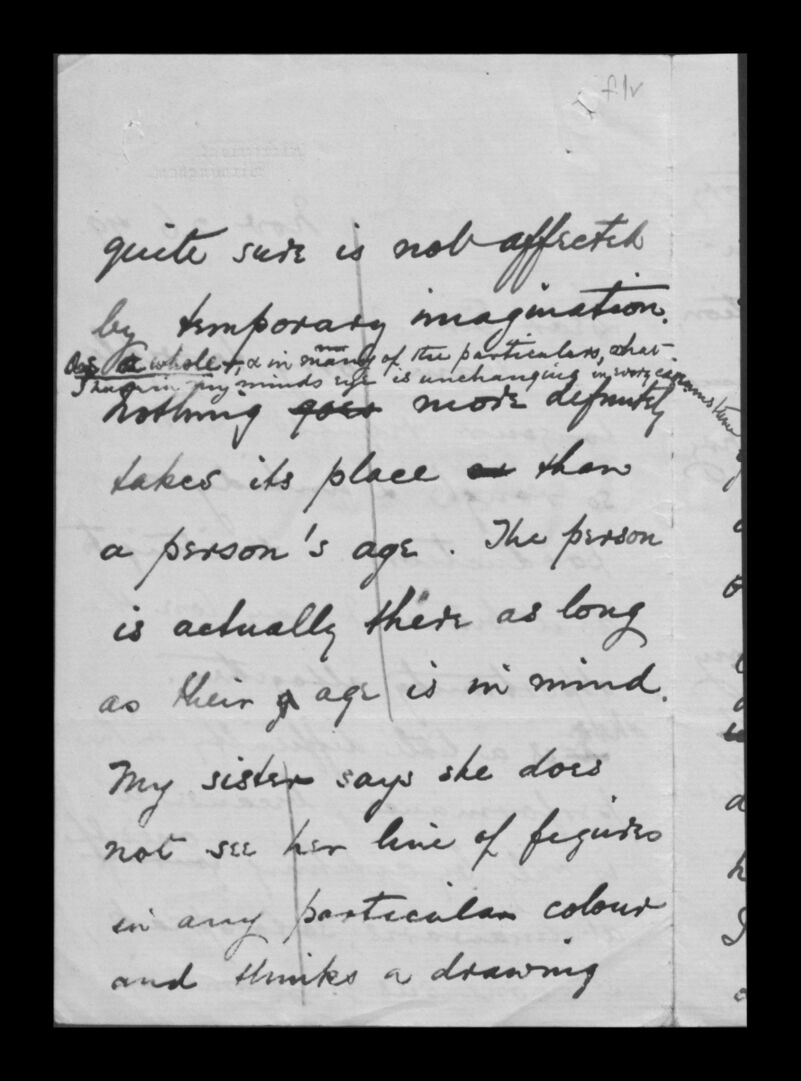 f1v
quite sure is not affected
by temporary imagination.
As a whole, & in many of the particulars, that
I see in my minds eye is unchanging in every
nothing goes more definitely
takes its place than
a person's age. The person
is actually there as long
as their age is in mind.
My sister says she does
not see her line of figures
in any particular colour
and thinks a drawing